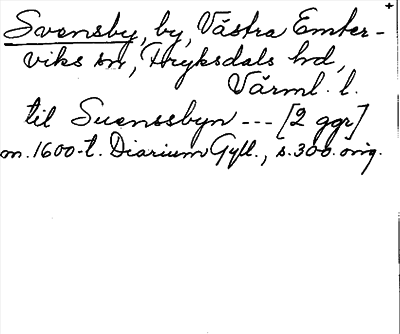 Svensby, by, Västra Emter-
viks sn, Fryksdals hd,
Värml. l.
til Suenssbyn --- [2 ggr]
m. 1600-t. Diarium Gyll., s. 300. orig.